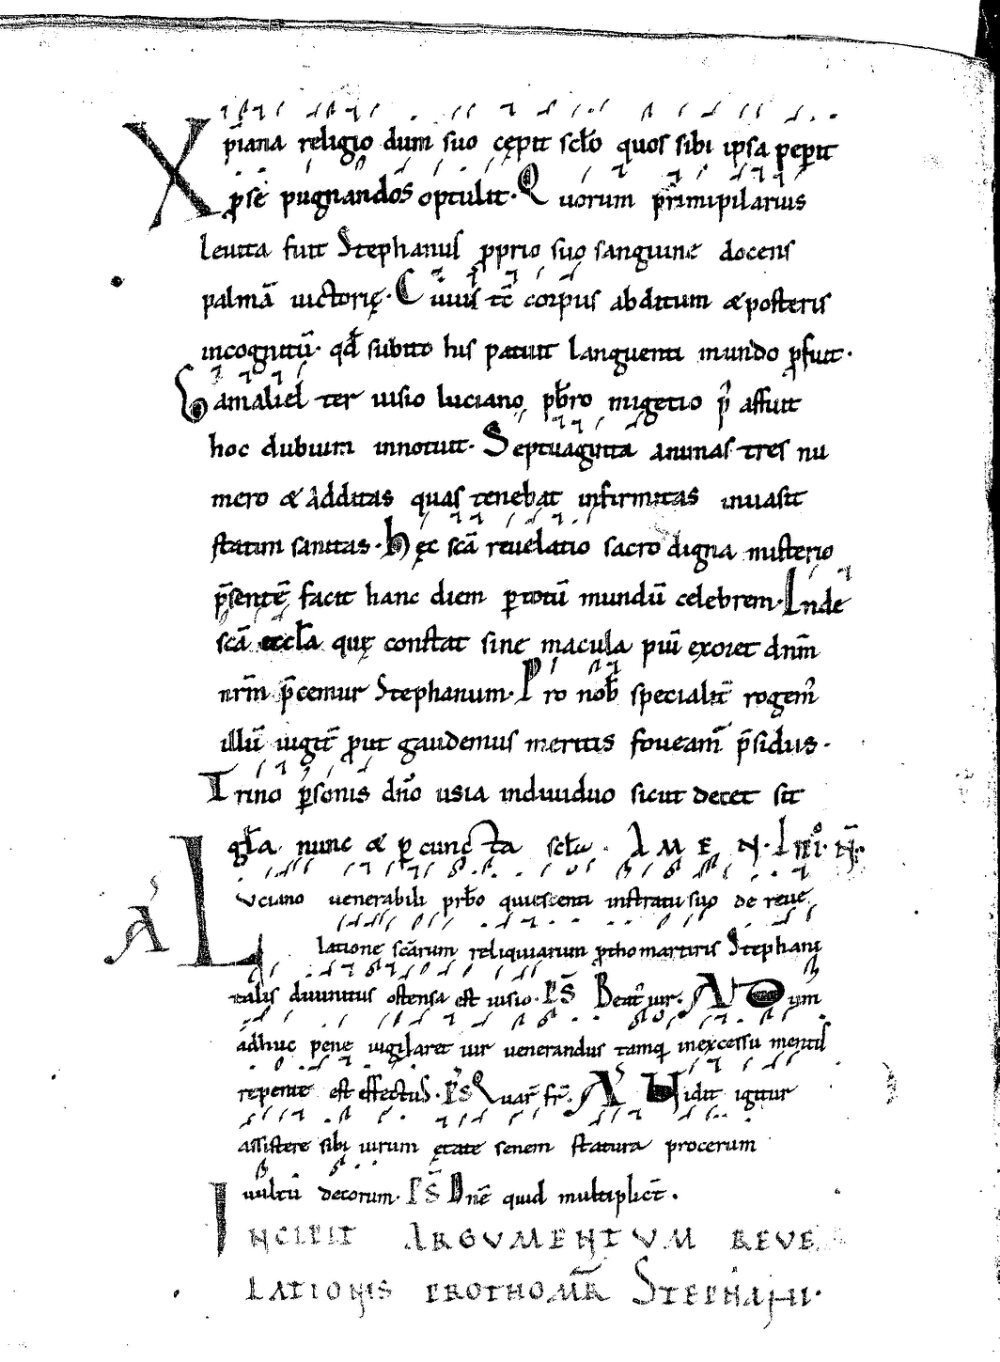 Xp̄iana religio dum suo cępit sc̄lo quos sibi ipsa peperit
p̄se pugnandos optulit. Quorum p̄rimipilarius
leuita fuit Stephanus pprio suo sanguine docens
palmā uictorię. Cuius tc̄ corpus abditum & posteris
incognitū. qd̄ subito his patuit languenti mundo pfuit.
Gamaliel ter uisio luciano pb̄ro migetio affuit
hoc dubium innotuit. Septuaginta animas tres nu
mero & additas quas tenebat infirmitas inuasit
statim sanitas. Hęc sc̄a reuelatio sacro digna misterio
p̄sentē facit hanc diem p totū mundū celebrem. Inde
sc̄a eccl̄a quę constat sine macula piū exoret dn̄m
nr̄m p̄cemur Stephanum. Pro nob̄ specialit̄ rogem̄
illū iugit̄ put gaudemus meritis foueam̄ p̄sidiis.
Trino p̄sonis dn̄o usia indiuiduo sicut decet sit
gl̄a nunc & p cuncta sc̄la. AMEN.
Luciano uenerabili prb̄o quiescenti in stratu suo de reue
A latione scārum reliquiarum pthomartiris Stephani
talis diuinitus ostensa est uisio. PS̄ Beat' uir. A Dum
adhuc pene uigilaret uir uenerandus tamq in excessu mentis
repente est effectus. PS̄ Quar̄ fr̄. A Uidit igitur
assistere sibi uirum ętate senem statura procerum
uultū decorum. PS̄ Dn̄e quid multiplict̄.
INCIPIT ARGUMENTUM REUE
LATIONIS PROTHOMR̄ STEPHANI.